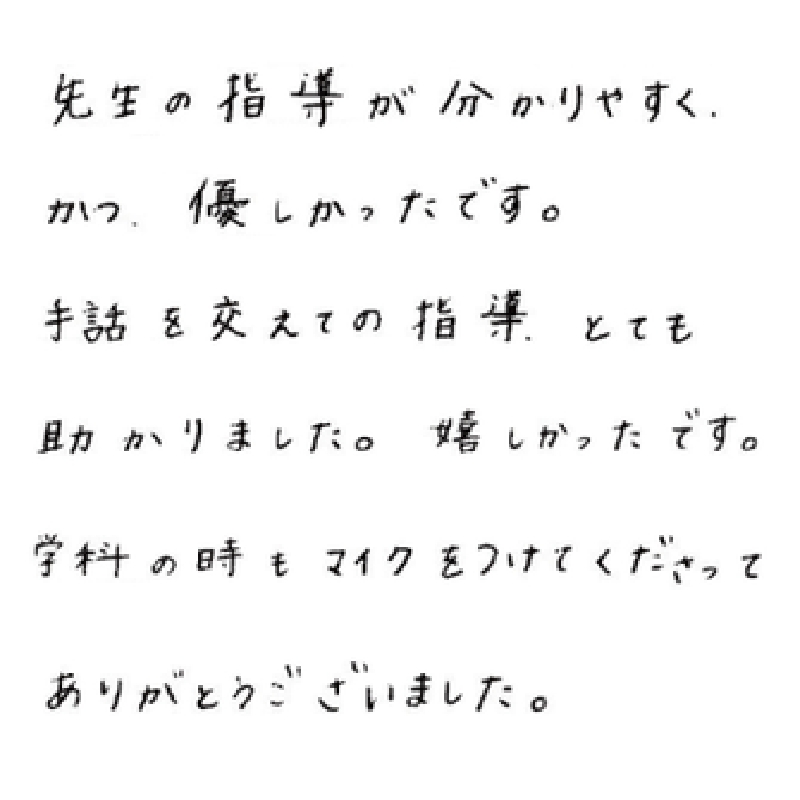 先生の指導が分かりやすく、
かつ、優しかったです。
手話を交えての指導、とても
助かりました。嬉しかったです。
学科の時もマイクをつけてくださって
ありがとうございました。